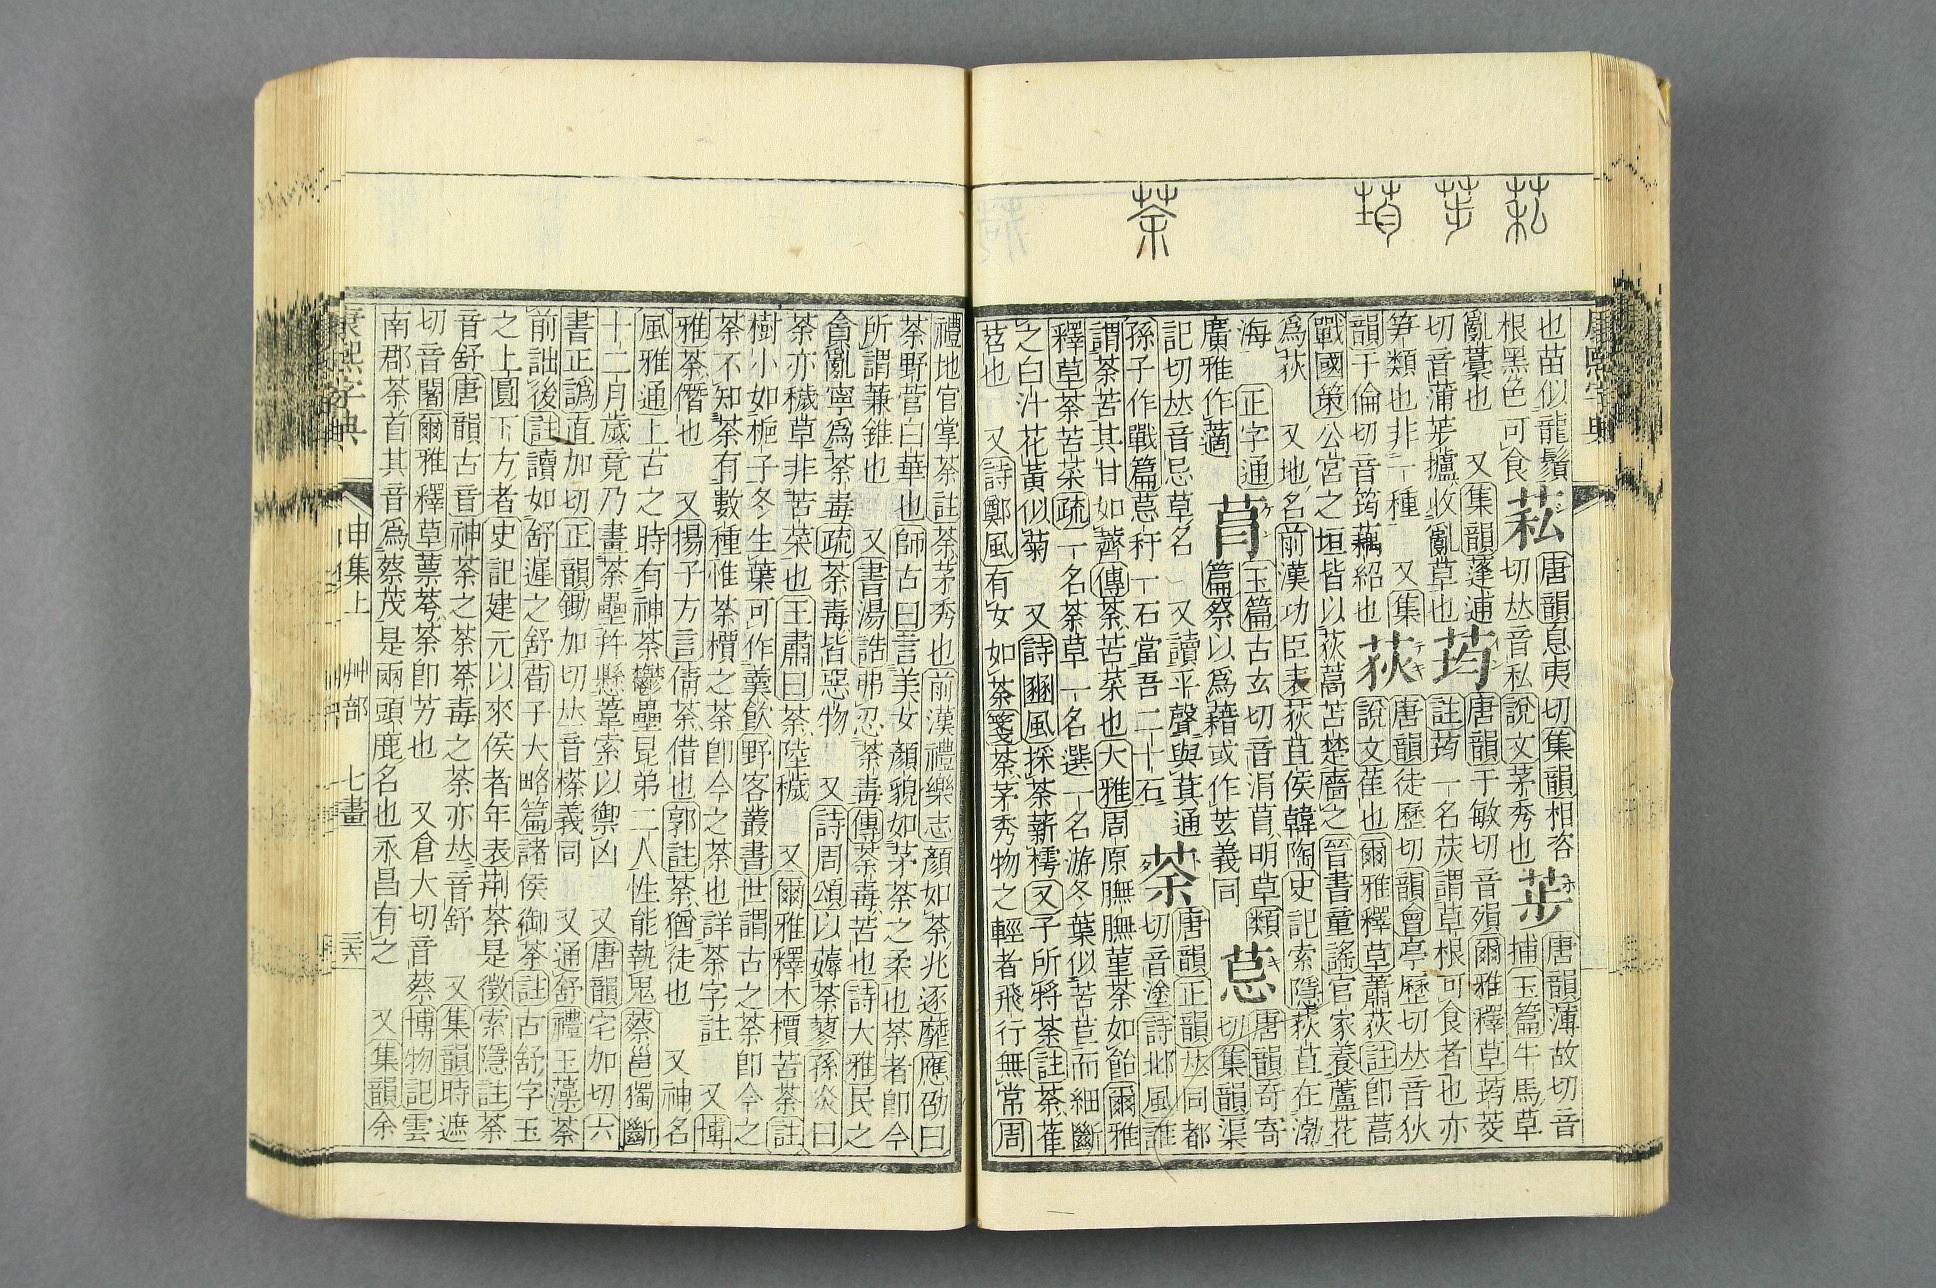 莻 荹 䓂 荼
也苗似龍鬚
根黑色可食 䓌 唐韻息夷切集韻相咨
切𠀤音私說文茅秀也 荹 唐韻薄故切音
捕玉篇牛馬草
亂藁也 又集韻蓬逋
切音蒲荹攎收亂草也 荺 唐韻于敏切音殞爾雅釋草荺茭
註荺一名茇謂草根可食者也亦
筍類也非一種 又集
韻于倫切音筠藕紹也 荻 唐韻徒歷切韻會亭歷切𠀤音狄
說文萑也爾雅釋草蕭荻註卽蒿
戰國策公宮之垣皆以荻蒿苫楚廧之晉書童謠官家養蘆花
爲荻 又地名前漢功臣表荻苴侯韓陶史記索隱荻苴在渤
海 正字通
廣雅作藡 䓂 玉篇古玄切音涓䓂明草類
篇祭以爲藉或作茲義同 荩 唐韻奇寄
切集韻渠
記切𠀤音忌草名 又讀平聲與萁通
孫子作戰篇𦮼秆一石當吾二十石 荼 唐韻正韻𠀤同都
切音塗詩邶風誰
謂荼苦其甘如薺傳荼苦菜也大雅周原膴膴堇荼如飴爾雅
釋草荼苦菜疏一名荼草一名選一名游冬葉似苦苣而細斷
之白汁花黃似菊 又詩豳風採荼薪樗又予所捋荼註荼萑
苕也 又詩鄭風有女如荼箋荼茅秀物之輕者飛行無常周
禮地官掌荼註荼茅秀也前漢禮樂志顏如荼兆逐靡應劭曰
荼野菅白華也師古曰言美女顏貌如茅荼之柔也荼者卽今
所謂蒹錐也 又書湯誥弗忍荼毒傳荼毒苦也詩大雅民之
貪亂寧爲荼毒疏荼毒皆惡物 又詩周頌以薅荼蓼孫炎曰
荼亦穢草非苦菜也王肅曰荼陸穢 又爾雅釋木檟苦荼註
樹小如梔子冬生葉可作羹飲野客叢書世謂古之荼卽今之
茶不知荼有數種惟荼檟之荼卽今之茶也詳茶字註 又博
雅荼僭也 又揚子方言倩荼借也郭註荼猶徒也 又神名
風雅通上古之時有神荼鬱壘昆弟二人性能執鬼蔡邕獨斷
十二月歲竟乃畫荼壘幷懸葦索以禦凶 又唐韻宅加切六
書正譌直加切正韻鋤加切𠀤音槎義同 又通舒禮玉藻荼
前詘後註讀如舒遲之舒荀子大略篇諸侯御荼註古舒字玉
之上圓下方者史記建元以來侯者年表荆荼是徵索隱註荼
音舒唐韻古音神荼之荼荼毒之荼亦𠀤音舒 又集韻時遮
切音闍爾雅釋草蔈荂荼卽芳也 又倉大切音蔡博物記雲
南郡荼首其音爲蔡茂是兩頭鹿名也永昌有之 又集韻余
康熙字典 申集上 艸部 七畫 三六